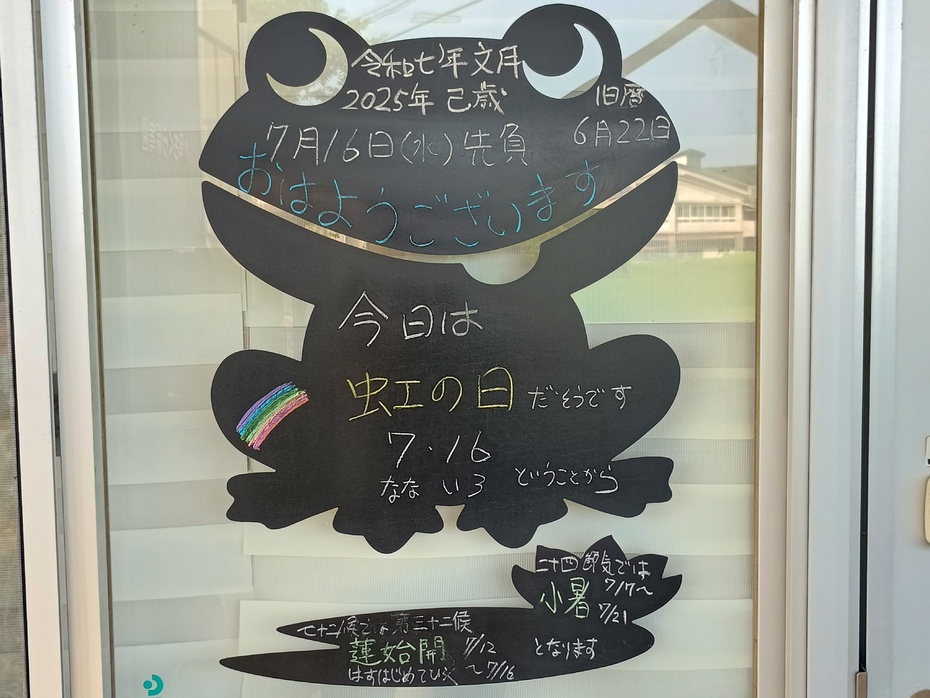 令和七年文月
2025年 己歳
旧暦
6月22日
7月16日(水)先負
おはようございます
今日は
虹の日だそうです
7・16
なな いろ ということから
二十四節気では
小暑 7/17〜
7/21
となります
七十二候では第三十二候
蓮始開 7/12
はすはじめてひらく 〜7/16